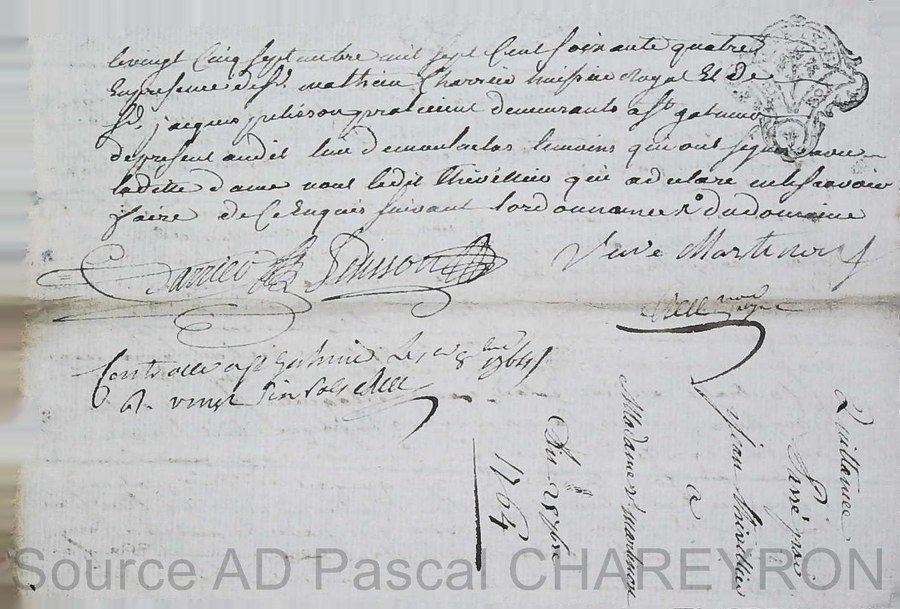 le vingt Cinq Septembre mil sept Cent soixante quatre
En presence de Sr. mathieu Charrier huissier Royal Et de
Sr. jacques pelisson praticien demeurants a St. galmier
de present audit lieu de temoins qui ont signé avec
laditte dame non ledit thévillier qui a declare ne le scavoir
faire de Ce Enquis suivant lordonnance du domaine
Carrier Pelisson Veuve Martinon
Controllé a St Galmier Le 8bre 1764
R. vingt Six sols
Quittance
par
jean thévillier
a
Madame Ve martinon
Du 25 7bre
1764
Source AD Pascal CHAREYRON